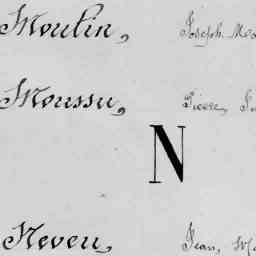 Moulin, Joseph
Moussu, Pierre,
N
Neveu, Jean,